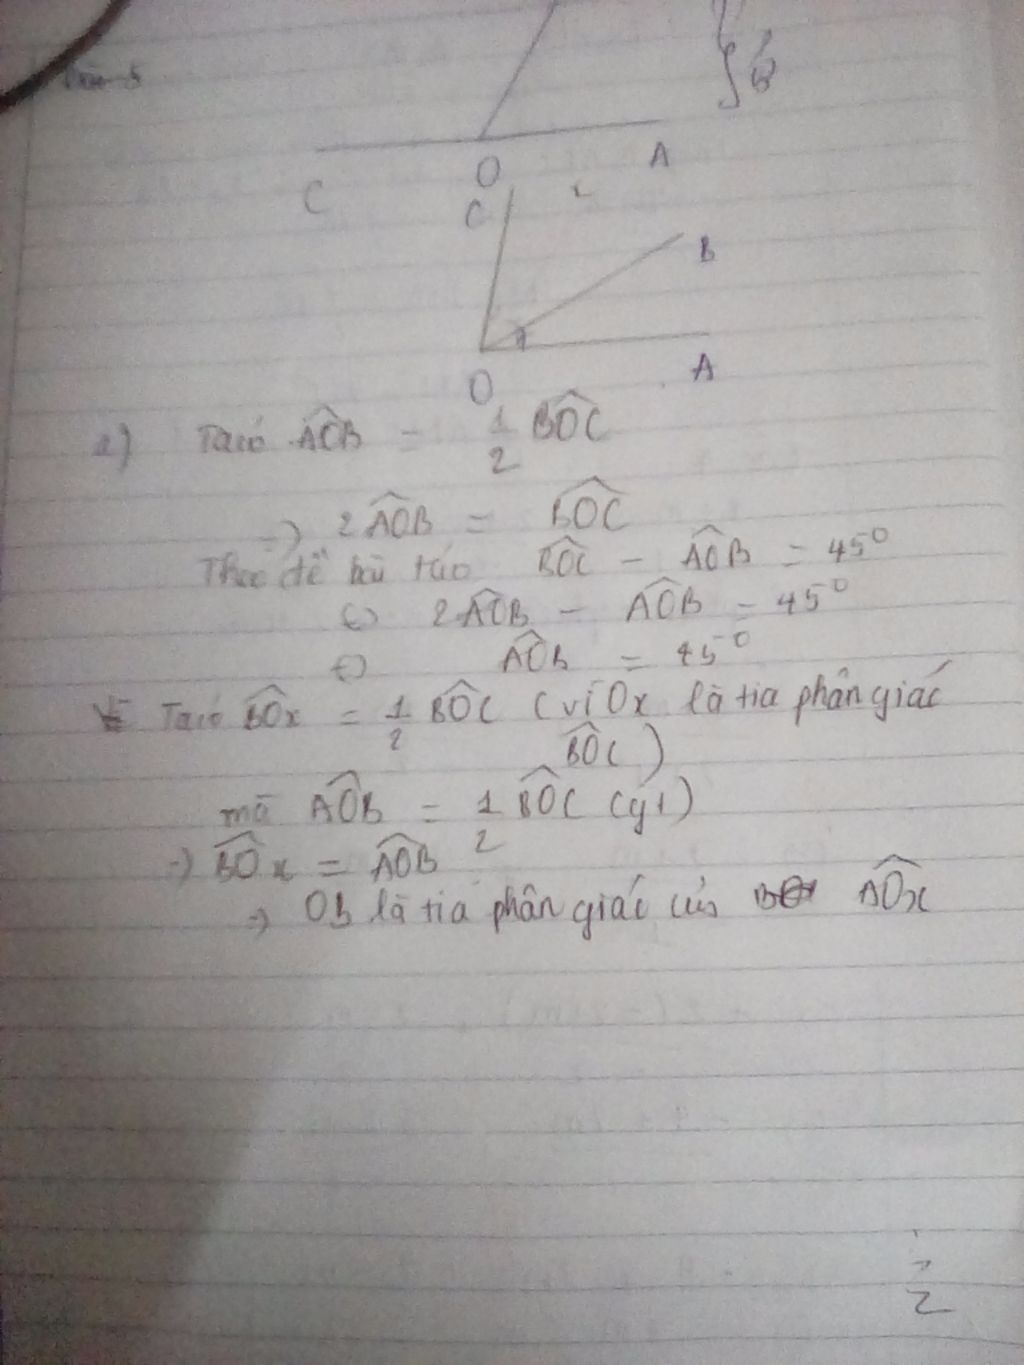 C
O
A
C
B
O
A
a) Ta có AÔB = 1/2 BÔC
=> 2AÔB = BÔC
Theo đề bài ta có BÔC - AÔB = 45°
<=> 2AÔB - AÔB = 45°
<=> AÔB = 45°
Ta có BÔx = 1/2 BÔC (vì Ox là tia phân giác
BÔC)
mà AÔB = 1/2 BÔC (
=> BÔx = AÔB
=> OB là tia phân giác của AÔx
2